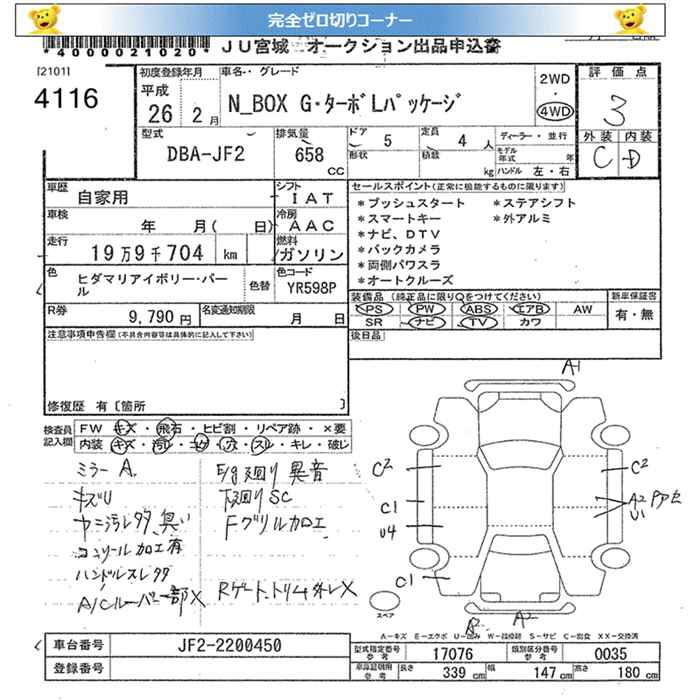 完全ゼロ切りコーナー
*4000021020*
JU宮城 オークション出品申込書
[2101]
4116
初度登録年月
平成
26年 2月
車名・グレード
N_BOX G・ターボLパッケージ
2WD
・
4WD
評価点
3
外装 内装
C D
型式
DBA-JF2
排気量
658
CC
ドア 5
形状
定員 4 人
積載 kg
ディーラー・並行
モデル年式 年
ハンドル 左・右
車歴
自家用
シフト
IAT
車検
年 月( 日)
冷房
AAC
走行
19万9千704 km
燃料
ガソリン
色
ヒダマリアイボリー・パール
色替
色コード
YR598P
R券
9,790 円
名変通知期限
月 日
セールスポイント(正常に機能するものに限ります)
*プッシュスタート *ステアシフト
*スマートキー *外アルミ
*ナビ、DTV
*バックカメラ
*両側パワスラ
*オートクルーズ
装備品(純正品に限り○をつけてください)
PS PW ABS エアB AW
SR ナビ TV カワ
新車保証書
有・無
後日品
注意事項申告欄(不具合内容等は具体的に記入して下さい)
修復歴 有〔箇所 〕
検査員記入欄
FW キズ・飛石・ヒビ割・リペア跡・×要
内装 キズ・汚レ・コゲ・穴・スレ・キレ・破レ
ミラーA.
キズU
ヤニ汚レ多 臭い
コンソール加工有
ハンドルスレ多
A/Cルーバー一部X
E/g廻り異音
下廻りSC
Fグリル加工
Rゲートトリム外レX
A1
C2
C2
C1
U4
C1
A2
U1
A2
スペア
A−キズ E−エクボ U−凹み W−補修跡 S−サビ C−腐食 XX−交換済
車台番号
JF2-2200450
登録番号
型式指定番号
参考
17076
類別区分番号
参考
0035
車庫証明用
参考
長さ 339 cm
幅 147 cm
高さ 180 cm